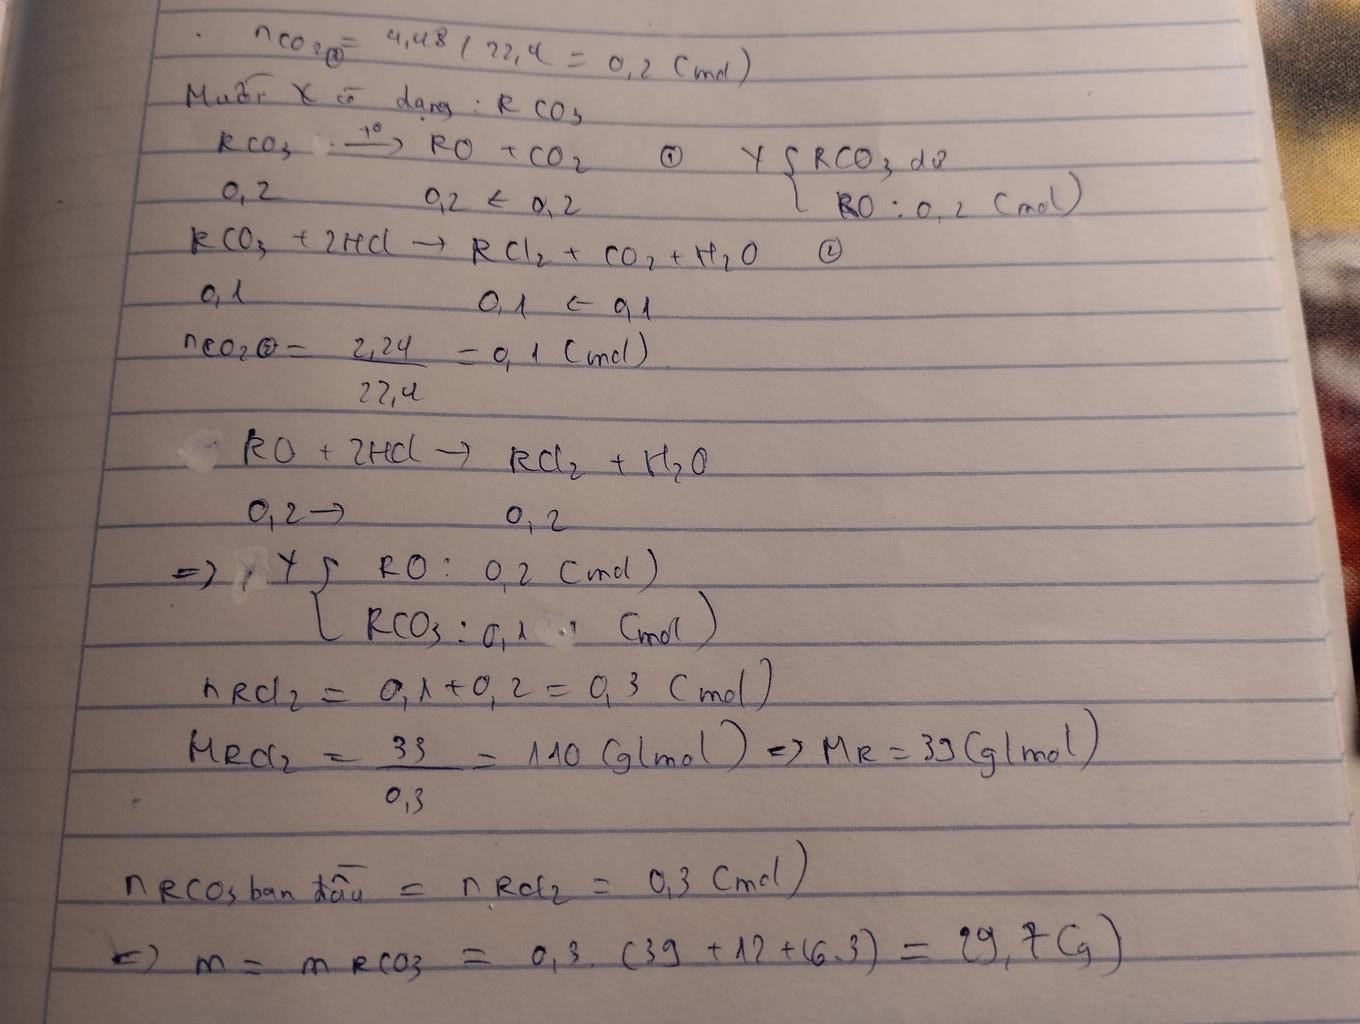 nCO2② = 4,48 / 22,4 = 0,2 (mol)
Muối X có dạng : RCO3
RCO3 —t°→ RO + CO2 ① Y { RCO3 dư
0,2 0,2 ← 0,2 RO : 0,2 (mol)
RCO3 + 2HCl → RCl2 + CO2 + H2O ②
0,1 0,1 ← 0,1
nCO2② = 2,24 / 22,4 = 0,1 (mol)
RO + 2HCl → RCl2 + H2O
0,2 → 0,2
=> Y { RO : 0,2 (mol)
RCO3 : 0,1 (mol)
nRCl2 = 0,1 + 0,2 = 0,3 (mol)
MRCl2 = 33 / 0,3 = 110 (g/mol) => MR = 39 (g/mol)
nRCO3 ban đầu = nRCl2 = 0,3 (mol)
=> m = mRCO3 = 0,3. (39 + 12 + 16.3) = 29,7 (g)